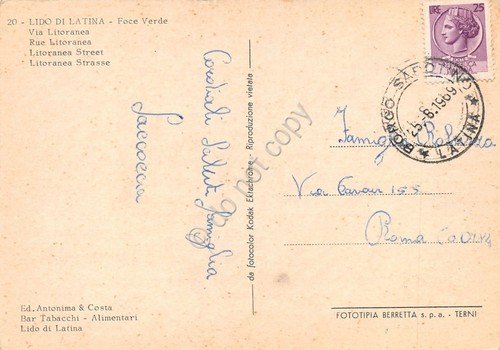 20 - LIDO DI LATINA - Foce Verde
Via Litoranea
Rue Litoranea
Litoranea Street
Litoranea Strasse
LIRE 25
BORGO SABOTINO
25.8.1969
* LATINA *
Cordiali Saluti
Famiglia
Saccoccia
Famiglia
Via Cavour 155
Roma
do not copy
da fotocolor Kodak Ektachrome - Riproduzione vietata
Ed. Antonima & Costa
Bar Tabacchi - Alimentari
Lido di Latina
FOTOTIPIA BERRETTA s.p.a. - TERNI